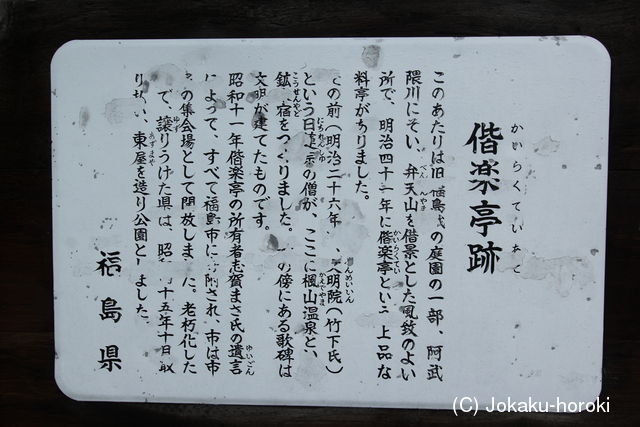 かいらくていあと
偕楽亭跡
このあたりは旧福島城の庭園の一部、阿武
隈川にそい、弁天山を偕景とした風致のよい
所で、明治四十一年に偕楽亭という上品な
料亭がありました。
の前(明治二十六年 明院(竹下氏)
という日 宗の僧が、ここに楓山温泉とい
鉱 宿をつくりました。 の傍にある歌碑は
文明が建てたものです。
昭和十 年偕楽亭の所有者志賀まさ氏の遺言
によって、すべて福島市に 附され、市は市
の集会場として開放しました。老朽化した
で、譲りうけた県は、昭 十五年十月取
り 、東屋を造り公園としました。
福島県
(C) Jokaku-horoki